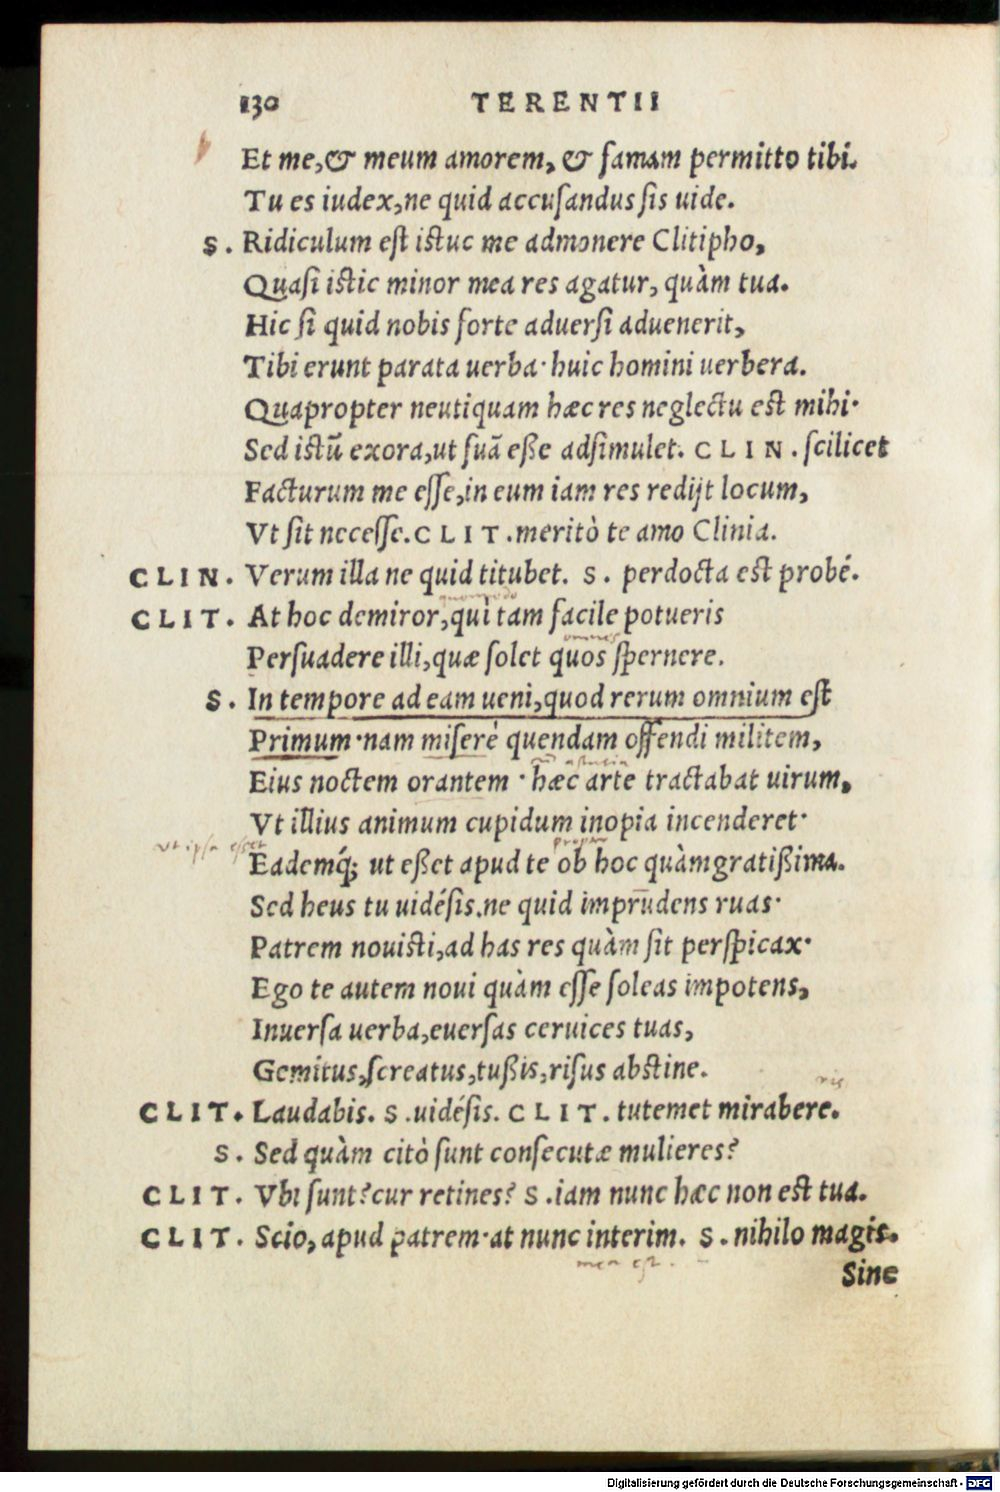 130 TERENTII
Et me,& meum amorem, & famam permitto tibi.
Tu es iudex,ne quid accusandus sis uide.
S. Ridiculum est istuc me admonere Clitipho,
Quasi istic minor mea res agatur, quàm tua.
Hic si quid nobis forte aduersi aduenerit,
Tibi erunt parata uerba· huic homini uerbera.
Quapropter neutiquam hæc res neglectu est mihi·
Sed istũ exora,ut suã eße adsimulet. CLIN. scilicet
Facturum me esse,in eum iam res redijt locum,
Vt sit necesse. CLIT. meritò te amo Clinia.
CLIN. Verum illa ne quid titubet. S. perdocta est probé.
quomodo
CLIT. At hoc demiror,quì tam facile potueris
omnes
Persuadere illi,quæ solet quos spernere.
S. In tempore ad eam ueni,quod rerum omnium est
Primum·nam miserè quendam offendi militem,
astutia
Eius noctem orantem · hæc arte tractabat uirum,
Vt illius animum cupidum inopia incenderet·
ut ipsa esset propter
Eademq́; ut eßet apud te ob hoc quàmgratißima.
Sed heus tu uidésis.ne quid imprudens ruas·
Patrem nouisti,ad has res quàm sit perspicax·
Ego te autem noui quàm esse soleas impotens,
Inuersa uerba,euersas ceruices tuas,
Gemitus,screatus,tußis,risus abstine.
ris
CLIT. Laudabis. S. uidésis. CLIT. tutemet mirabere.
S. Sed quàm citò sunt consecutæ mulieres?
CLIT. Vbi sunt?cur retines? S. iam nunc hæc non est tua.
CLIT. Scio, apud patrem·at nunc interim. S. nihilo magis.
mea est.
Sine
Digitalisierung gefördert durch die Deutsche Forschungsgemeinschaft - DFG